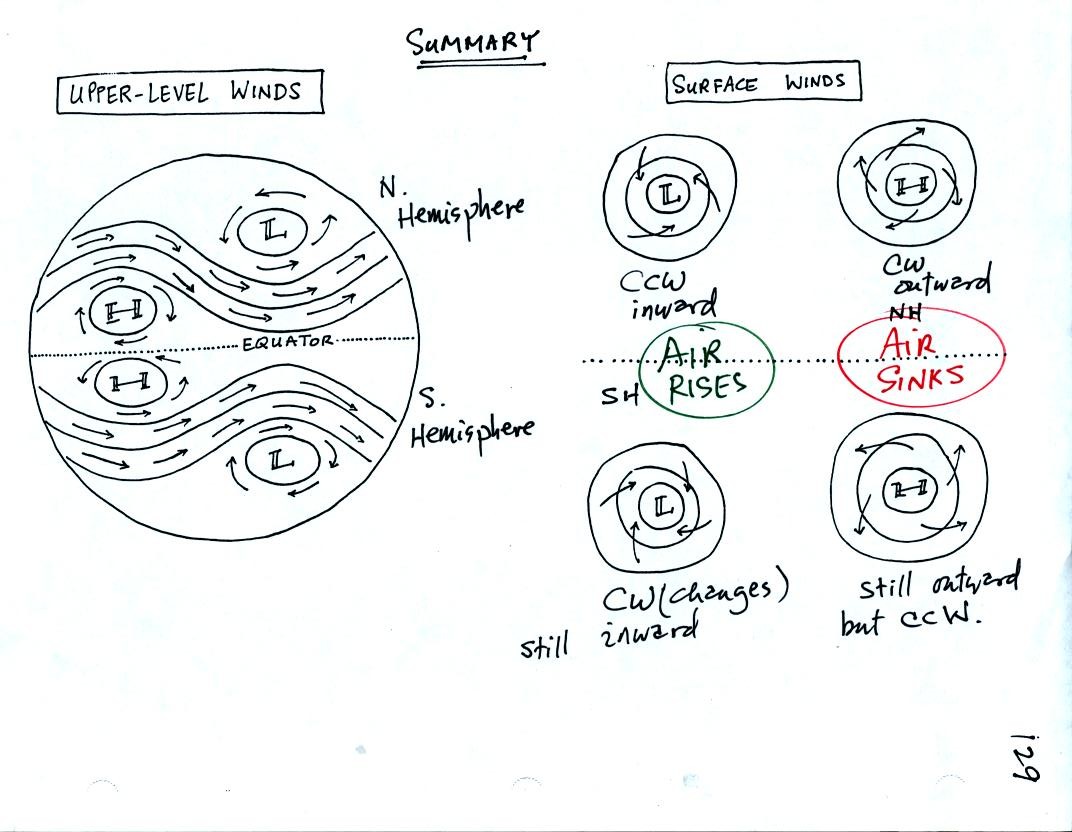 SUMMARY
UPPER-LEVEL WINDS
N.
Hemisphere
L
H
EQUATOR
H
S.
Hemisphere
L
SURFACE WINDS
L
H
CCW
inward
CW
outward
NH
AIR
RISES
AIR
SINKS
SH
L
H
CW (changes)
still inward
still outward
but CCW.
i29